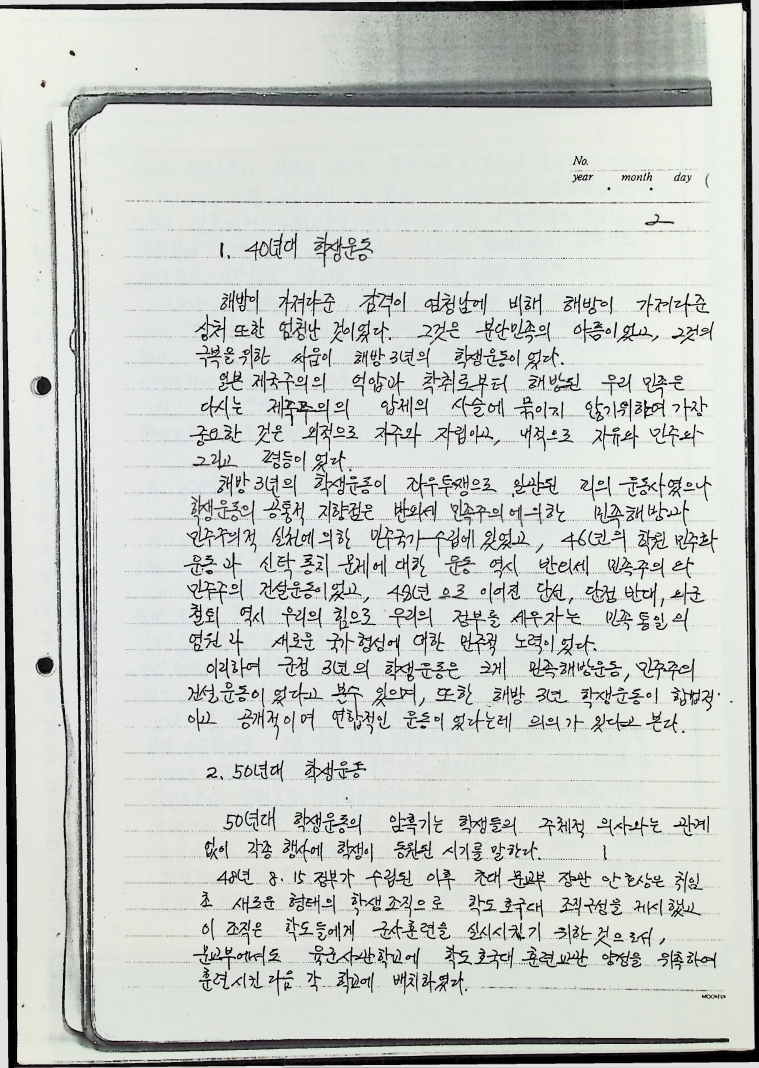 No.
year . month . day (
2
1. 40년대 학생운동
해방이 가져다준 감격이 엄청남에 비해 해방이 가져다준
상처 또한 엄청난 것이었다. 그것은 분단민족의 아픔이었고, 그것의
극복을 위한 싸움이 해방 3년의 학생운동이었다.
일본 제국주의의 억압과 착취로부터 해방된 우리 민족은
다시는 제국주의의 압제의 사슬에 묶이지 않기위하여 가장
중요한 것은 외적으로 자주와 자립이고, 내적으로 자유와 민주와
그리고 평등이었다.
해방 3년의 학생운동이 좌우투쟁으로 일관된 피의 운동사였으나
학생운동의 공통적 지향점은 반외세 민족주의에 의한 민족해방과
민주주의적 실천에 의한 민주국가 수립에 있었고, 46년의 학원 민주화
운동과 신탁통치 문제에 대한 운동 역시 반외세 민족주의와
민주주의 건설운동이었고, 48년으로 이어진 단선, 단정 반대, 외군
철퇴 역시 우리의 힘으로 우리의 정부를 세우자는 민족통일의
염원과 새로운 국가형성에 대한 민주적 노력이었다.
이리하여 군정 3년의 학생운동은 크게 민족해방운동, 민주주의
건설운동이었다고 볼수 있으며, 또한 해방 3년 학생운동이 합법적
이고 공개적이며 연합적인 운동이었다는데 의의가 있다고 본다.
2. 50년대 학생운동
50년대 학생운동의 암흑기는 학생들의 주체적 의사와는 관계
없이 각종 행사에 학생이 동원된 시기를 말한다.
48년 8.15 정부가 수립된 이후 초대 문교부 장관 안호상은 취임
초 새로운 형태의 학생조직으로 학도호국대 조직구성을 제시했고
이 조직은 학도들에게 군사훈련을 실시시키기 위한 것으로서,
문교부에서도 육군사관학교에 학도호국대 훈련교관 양성을 위촉하여
훈련시킨 다음 각 학교에 배치하였다.